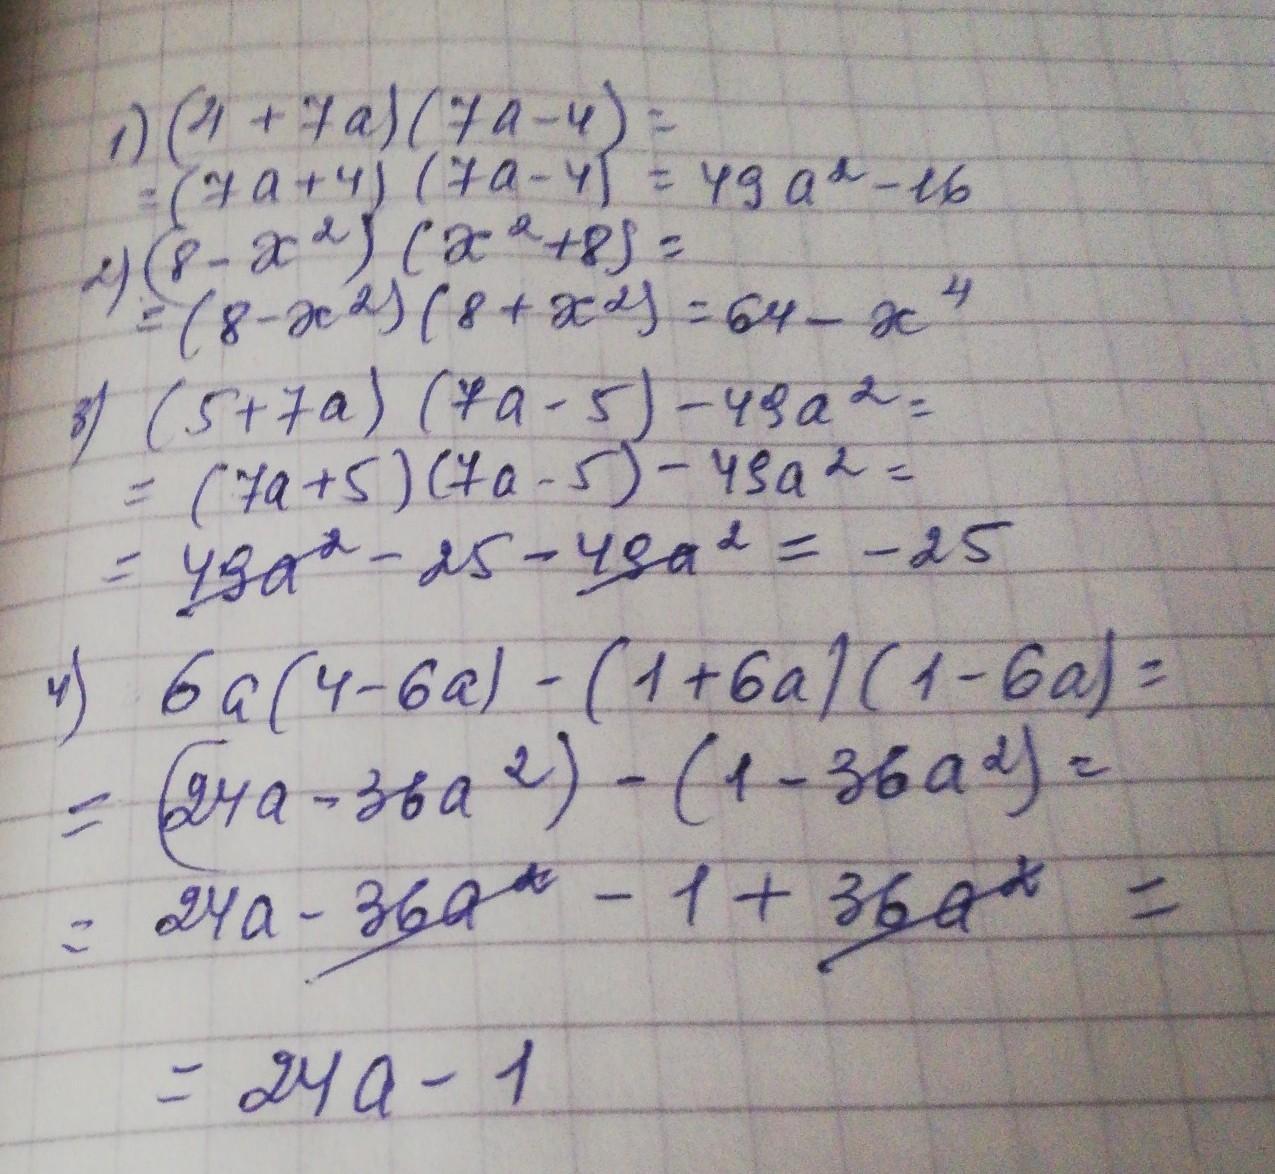 1) (4 + 7a) (7a - 4) =
= (7a + 4) (7a - 4) = 49a² - 16
2) (8 - x²) (x² + 8) =
= (8 - x²) (8 + x²) = 64 - x⁴
3) (5 + 7a) (7a - 5) - 49a² =
= (7a + 5) (7a - 5) - 49a² =
= 49a² - 25 - 49a² = -25
4) 6a (4 - 6a) - (1 + 6a) (1 - 6a) =
= (24a - 36a²) - (1 - 36a²) =
= 24a - 36a² - 1 + 36a² =
= 24a - 1